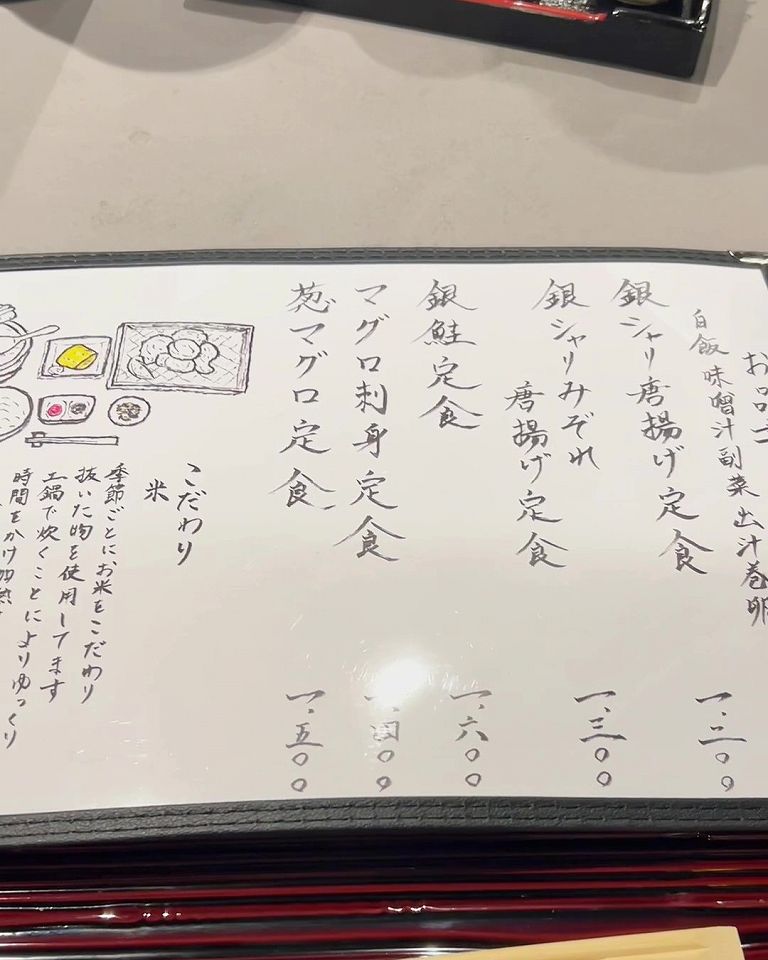 お品
白飯 味噌汁 副菜 出汁巻卵
銀シャリ唐揚げ定食 一、二〇〇
銀シャリみぞれ
唐揚げ定食 一、三〇〇
銀鮭定食 一、六〇〇
マグロ刺身定食 一、四〇〇
葱マグロ定食 一、五〇〇
こだわり
米
季節ごとにお米をこだわり
抜いた物を使用してます
土鍋で炊くことによりゆっくり
時間をかけ加熱